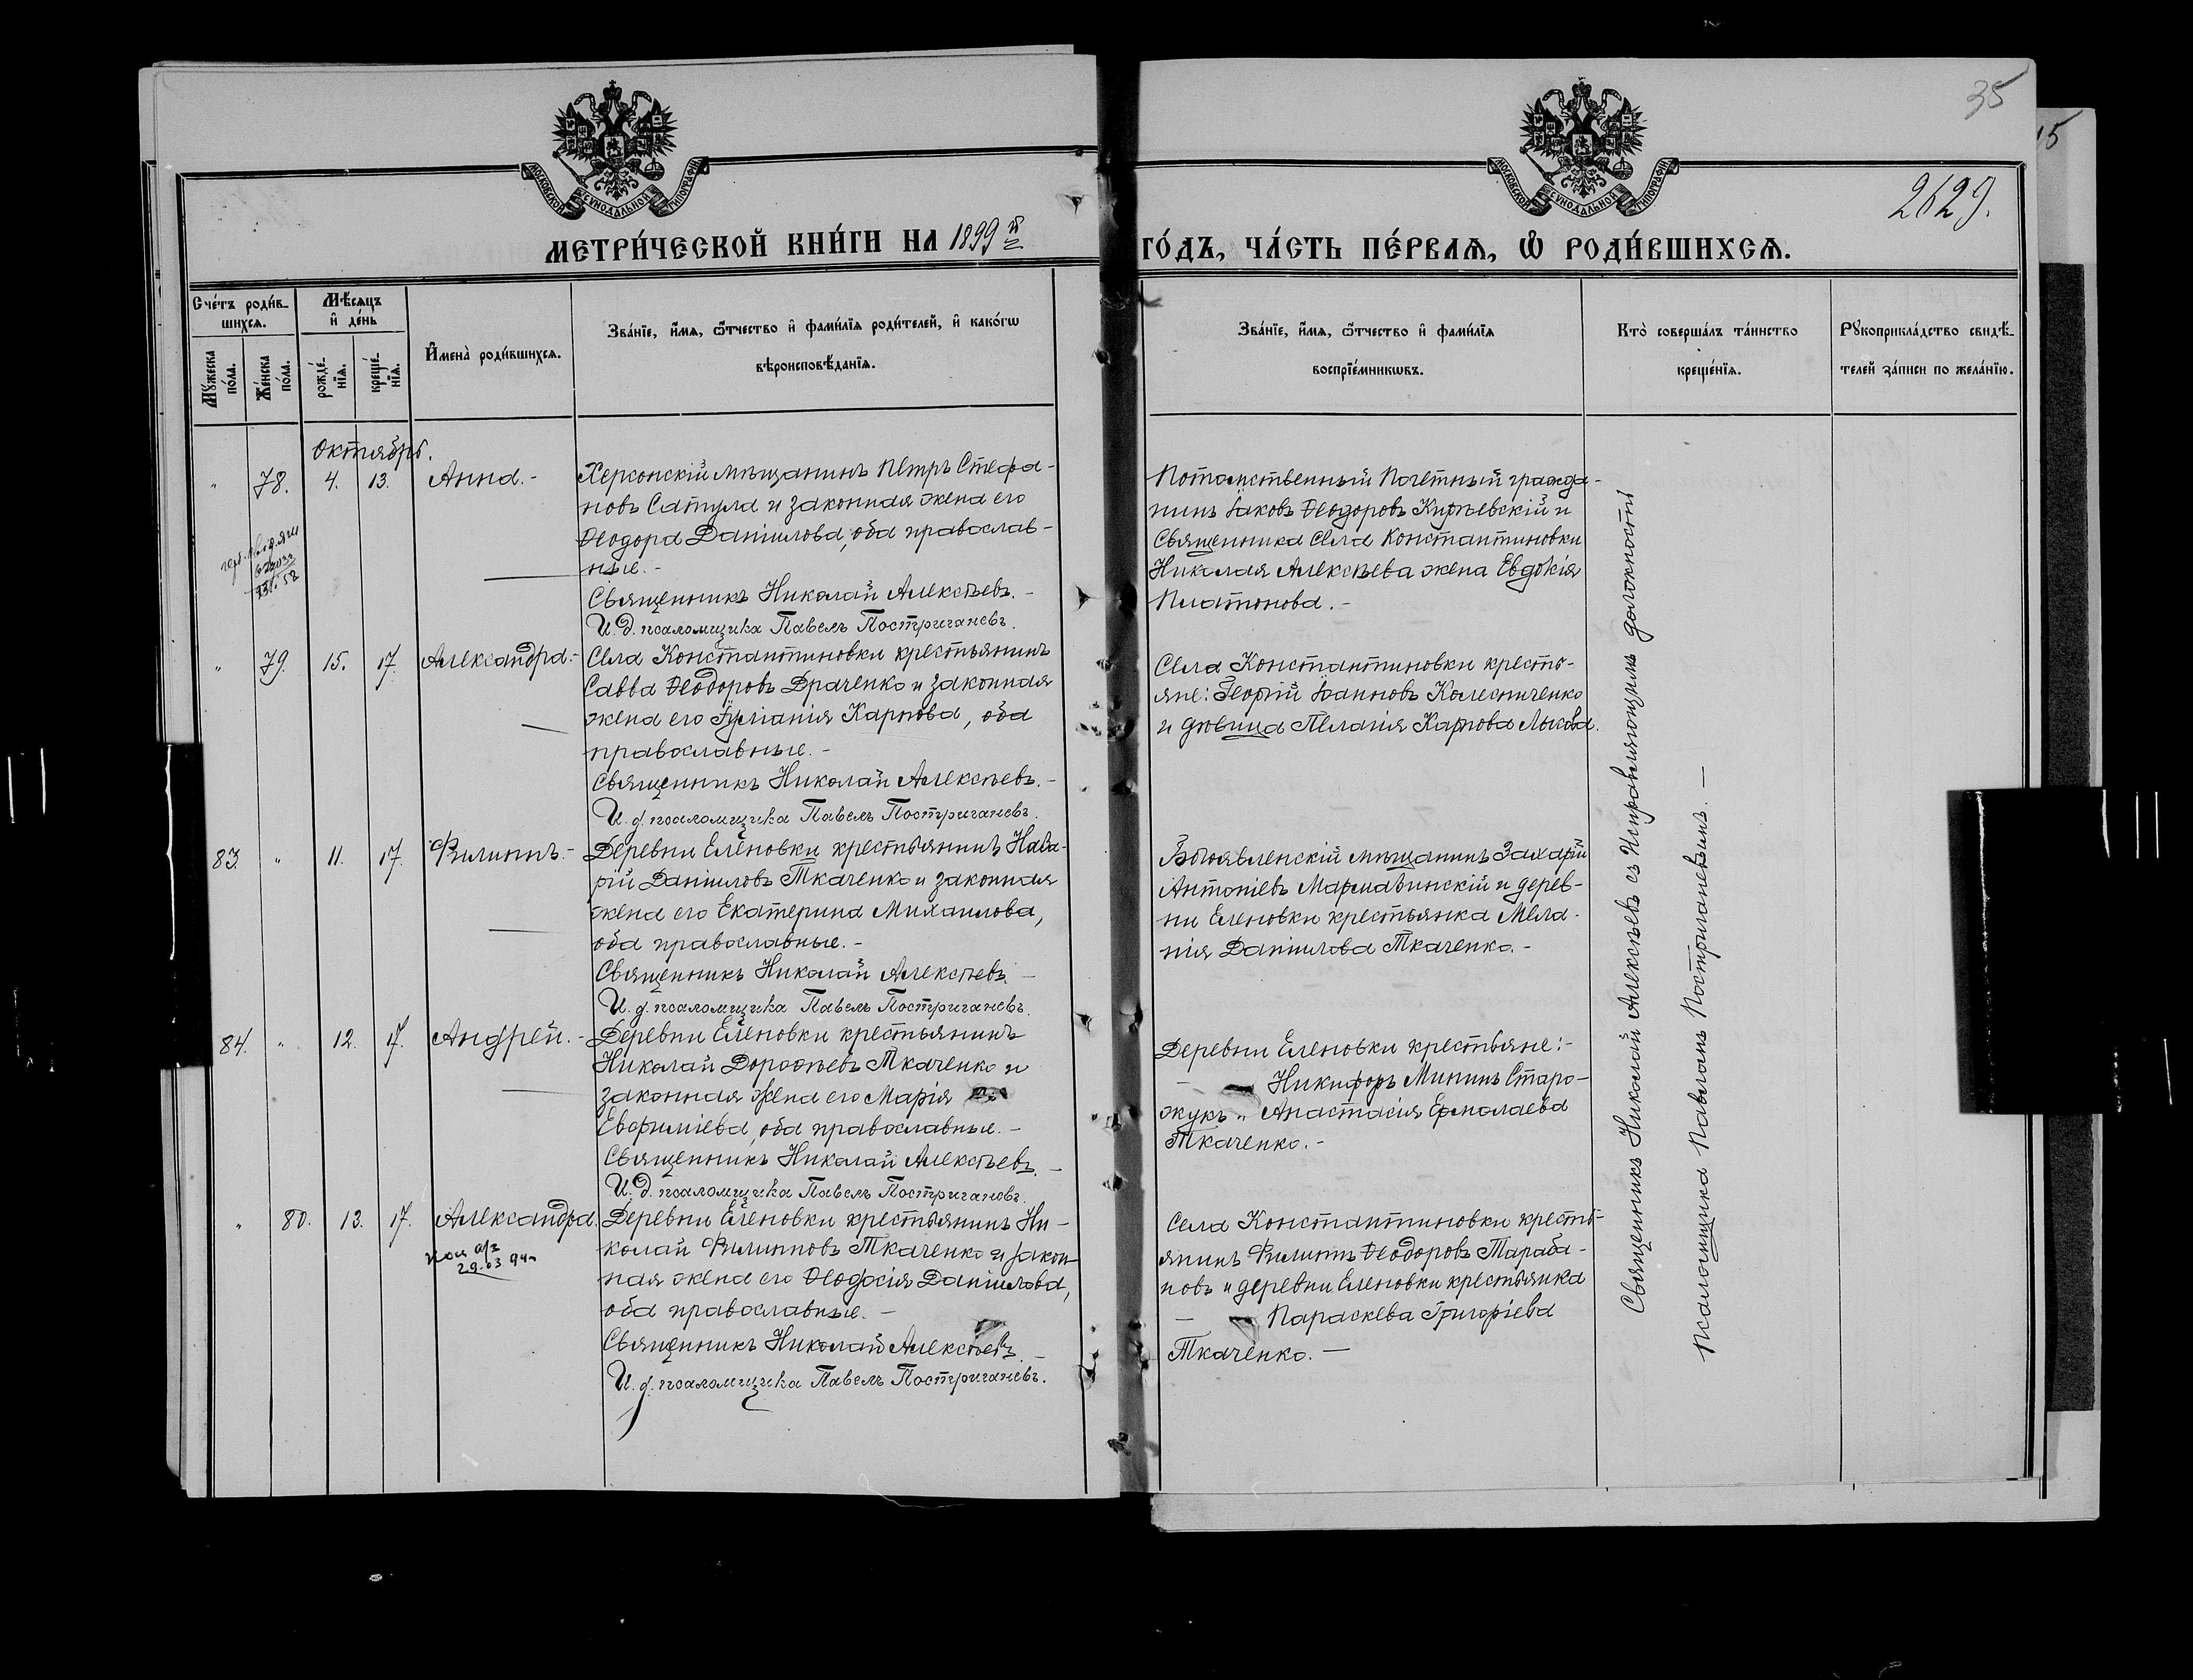 35
15
МОСКОВСКОЙ СѴНОДАЛЬНОЙ ТИПОГРАФІИ
МОСКОВСКОЙ СѴНОДАЛЬНОЙ ТИПОГРАФІИ
2629.
МЕТРИ́ЧЕСКОЙ КНИ́ГИ НА 1899 й
ГО́ДЪ, ЧА́СТЬ ПЕ́РВАѦ, Ѡ РОДИ́ВШИХСѦ.
Сче́тъ роди́в-
шихсѧ.
Мꙋжеска по́ла.
Же́нска по́ла.
Мѣ́сѧцъ и҆ де́нь
рожде́-
нїѧ.
креще́-
нїѧ.
И҆мена̀ роди́вшихсѧ.
Зва́нїе, и҆́мѧ, ѻ҆́тчество и҆ фами́лїѧ роди́телей, и҆ како́гѡ
вѣроисповѣ́данїѧ.
Зва́нїе, и҆́мѧ, ѻ҆́тчество и҆ фами́лїѧ
воспрїе́мникѡвъ.
Кто̀ соверша́лъ та́инство
креще́нїѧ.
Рꙋкоприкла́дство свидѣ́-
телей за́писи по жела́нїю.
Октябрь.
" 78. 4. 13. Анна.-
Херсонскій мѣщанинъ Петръ Стефа-
новъ Сатула и законная жена его
Ѳеодора Даніилова, оба православ-
ные.-
Священникъ Николай Алексѣевъ.-
И. д. псаломщика Павелъ Постригачевъ.
Потомственный Почетный гражда-
нинъ Іаковъ Ѳеодоровъ Кирѣевскій и
Священника Села Константиновки
Николая Алексѣева жена Евдокія
Платонова.-
" 79. 15. 17. Александра.-
Села Константиновки крестьянинъ
Савва Ѳеодоровъ Драченко и законная
жена его Іуліанія Карпова, оба
православные.-
Священникъ Николай Алексѣевъ.-
И. д. псаломщика Павелъ Постригачевъ.
Села Константиновки кресть-
яне: Георгій Іоанновъ Колесниченко
и дѣвица Пелагія Карпова Лыкова.
83. " 11. 17. Филиппъ.-
Деревни Еленовки крестьянинъ Наза-
рій Даніиловъ Ткаченко и законная
жена его Екатерина Михаилова,
оба православные.-
Священникъ Николай Алексѣевъ.-
И. д. псаломщика Павелъ Постригачевъ.
Богоявленскій мѣщанинъ Захарій
Антоніевъ и дерев-
ни Еленовки крестьянка Мела-
нія Даніилова Ткаченко.-
84. " 12. 17. Андрей.-
Деревни Еленовки крестьянинъ
Николай Дороѳеевъ Ткаченко и
законная жена его Марія
Евфиміева, оба православные.-
Священникъ Николай Алексѣевъ.-
И. д. псаломщика Павелъ Постригачевъ.
Деревни Еленовки крестьяне:-
Никифоръ Мининъ Старо-
жукъ и Анастасія Ермолаева
Ткаченко.-
" 80. 13. 17. Александра.
29.03.94
Деревни Еленовки крестьянинъ Ни-
колай Филипповъ Ткаченко и закон-
ная жена его Ѳеодосія Даніилова,
оба православные.-
Священникъ Николай Алексѣевъ.-
И. д. псаломщика Павелъ Постригачевъ.
Села Константиновки кресть-
янинъ Филиппъ Ѳеодоровъ Тараба-
новъ и деревни Еленовки крестьянка
Параскева Григоріева
Ткаченко.-
Священникъ Николай Алексѣевъ съ Исправляющимъ должность
псаломщика Павломъ Постригачевымъ.-